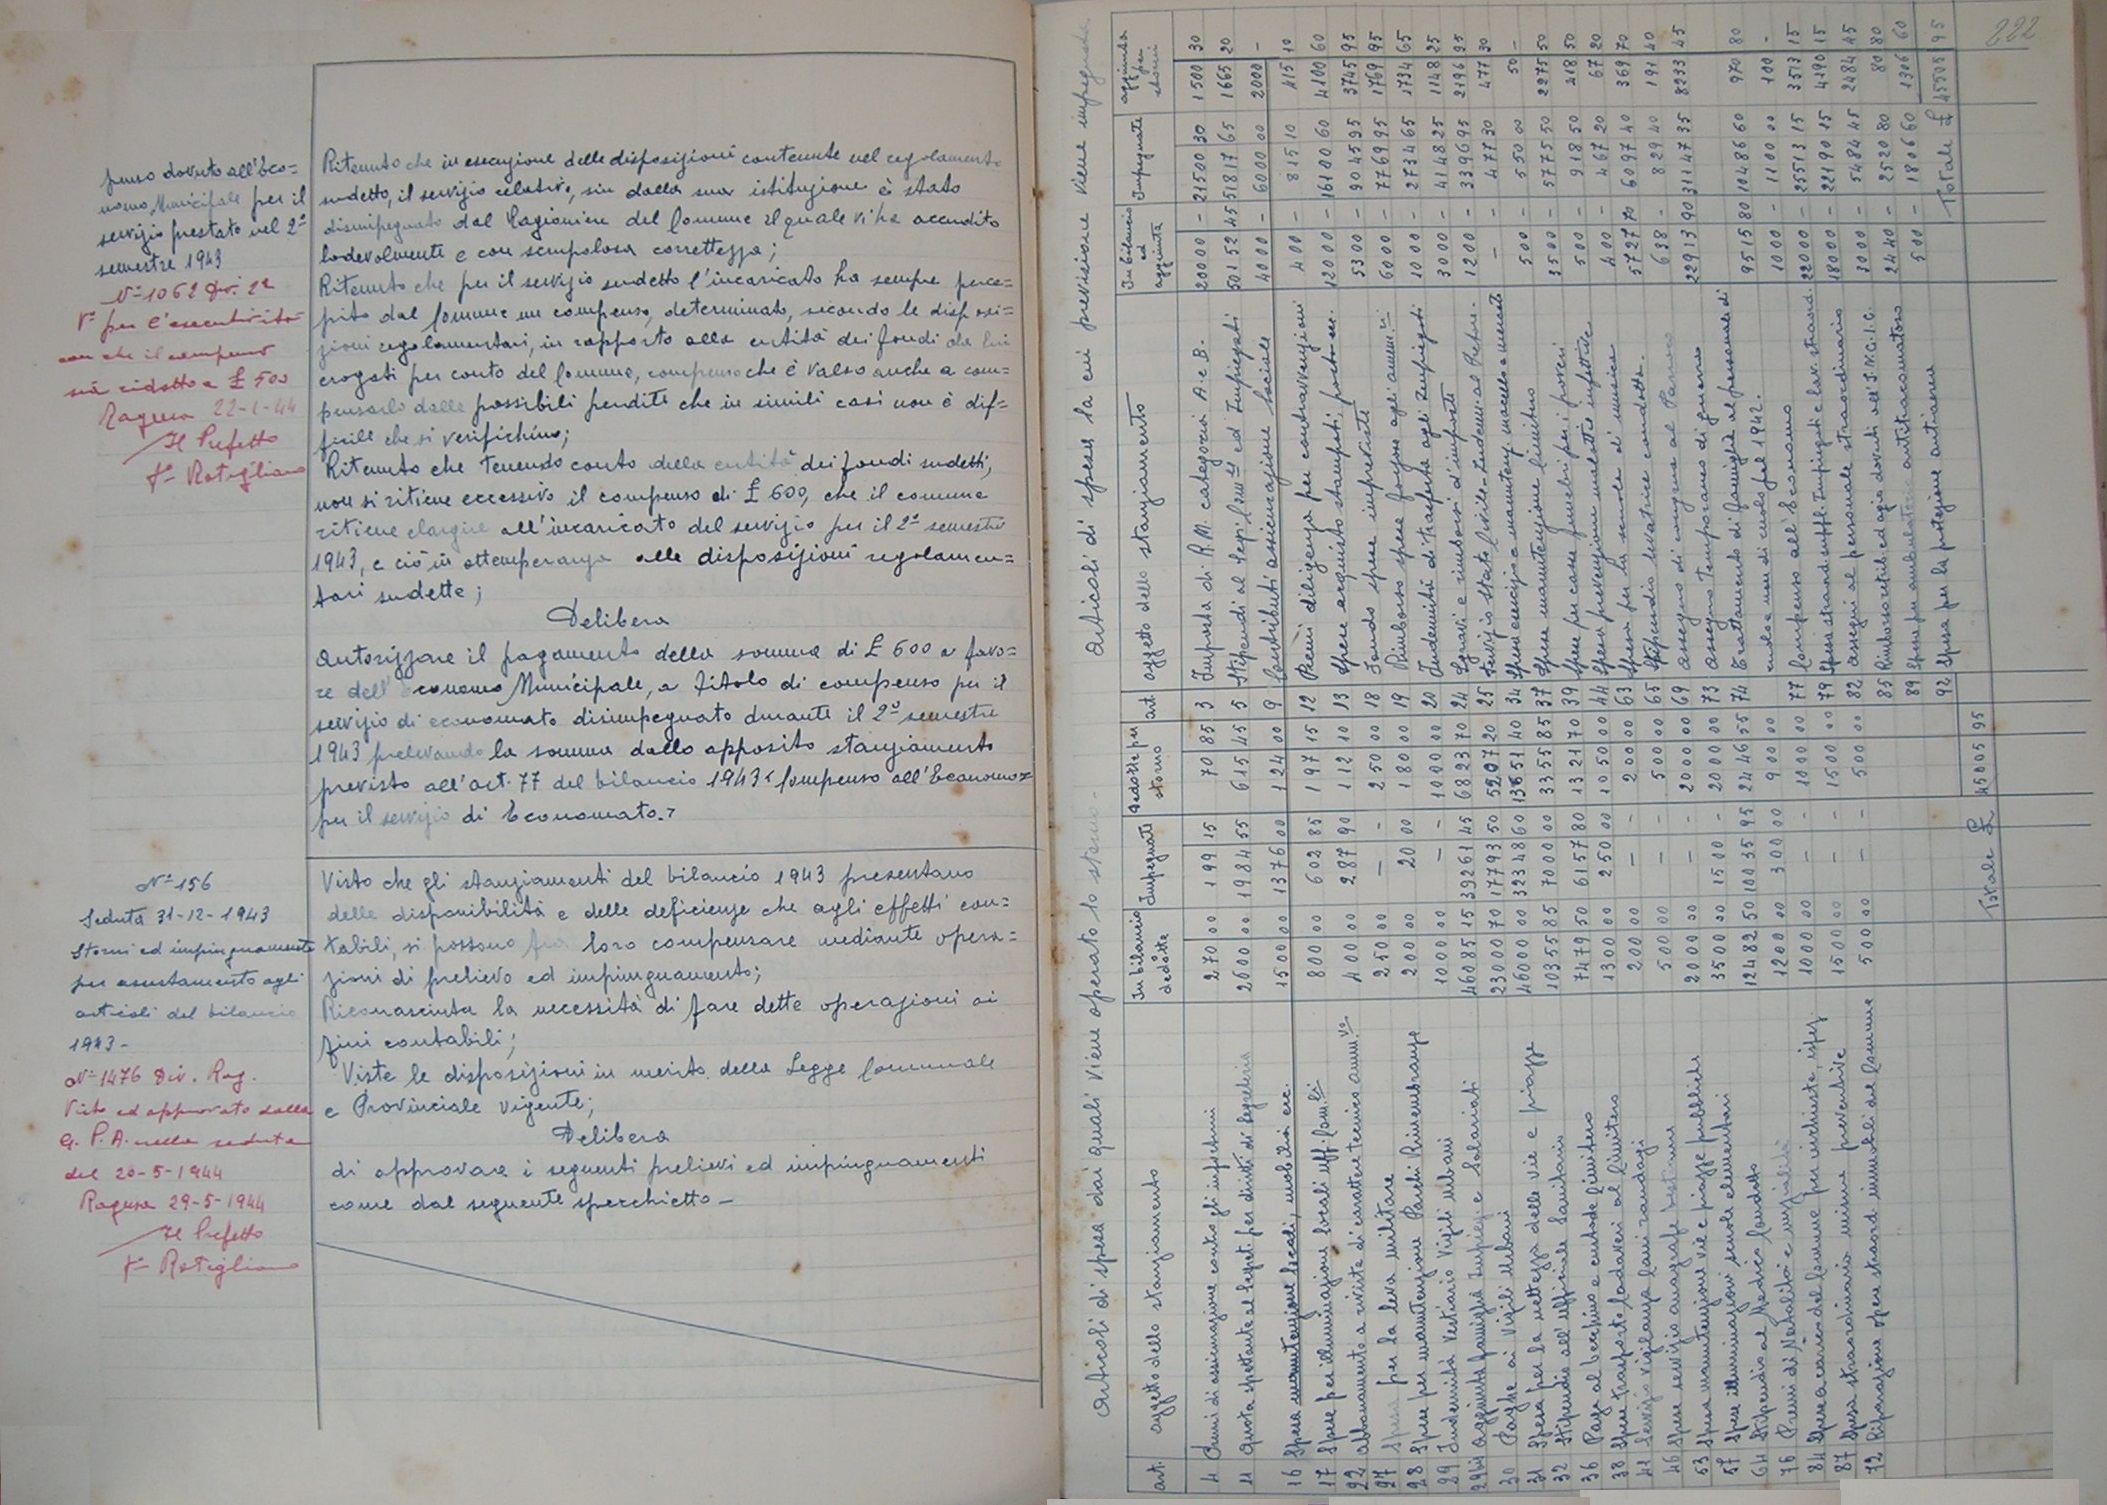 penso dovuto all'Eco=
nomo Municipale per il
servizio prestato nel 2º
semestre 1943
Nº 1062 Div. 2ª
Vº per l'esecutività
con che il compenso
sia ridotto a £ 500
Ragusa 22-1-44
Il Prefetto
Fº Rotigliano
Ritenuto che in esecuzione delle disposizioni contenute nel regolamento
sudetto, il servizio relativo, sin dalla sua istituzione è stato
disimpegnato dal Ragioniere del Comune il quale vi ha accudito
lodevolmente e con scrupolosa correttezza;
Ritenuto che per il servizio sudetto l'incaricato ha sempre perce=
pito dal Comune un compenso, determinato, secondo le disposi=
zioni regolamentari, in rapporto alla entità dei fondi da lui
erogati per conto del Comune, compenso che è valso anche a com=
pensarlo dalle possibili perdite che in simili casi non è dif=
ficile che si verifichino;
Ritenuto che tenendo conto della entità dei fondi sudetti,
non si ritiene eccessivo il compenso di £ 600, che il comune
ritiene elargire all'incaricato del servizio per il 2º semestre
1943, e ciò in ottemperanza alle disposizioni regolamen=
tari sudette;
Delibera
Autorizzare il pagamento della somma di £ 600 a favo=
re dell'Economo Municipale, a titolo di compenso per il
servizio di economato disimpegnato durante il 2º semestre
1943 prelevando la somma dallo apposito stanziamento
previsto all'art. 77 del bilancio 1943 "Compenso all'Economo
per il servizio di Economato."
Nº 156
Seduta 31-12-1943
Storni ed impinguamento
per assestamento agli
articoli del bilancio
1943-
Nº 1476 Div. Rag.
Visto ed approvato dalla
G. P. A. nella seduta
del 20-5-1944
Ragusa 29-5-1944
Il Prefetto
Fº Rotigliano
Visto che gli stanziamenti del bilancio 1943 presentano
delle disponibilità e delle deficienze che agli effetti con=
tabili, si possono fra loro compensare mediante opera=
zioni di prelievo ed impinguamento;
Riconosciuta la necessità di fare dette operazioni ai
fini contabili;
Viste le disposizioni in merito della Legge Comunale
e Provinciale vigente;
Delibera
di approvare i seguenti prelievi ed impinguamenti
come dal seguente specchietto -
222
Articoli di spesa dai quali viene operato lo storno -
art. oggetto dello stanziamento In bilancio dedotte Impegnate dedotte per storno
4 Premi di assicurazione contro gli infortuni 270 00 199 15 70 85
11 Quota spettante al Segret. per diritti di Segreteria 2600 00 1984 55 615 45
16 Spesa manutenzione locali, mobilia ecc. 1500 00 1376 00 124 00
17 Spese per illuminazione locali uff. Com.li 800 00 602 85 197 15
22 Abbonamento a riviste di carattere tecnico amm.vo 400 00 287 90 112 10
27 Spesa per la leva militare 250 00 - 250 00
28 Spese per manutenzione Parchi Rimembranze 200 00 20 00 180 00
29 Indennità Vestiario Vigili urbani 1000 00 - 1000 00
29bis Aggiunte famiglia Impieg. e Salariati 46085 15 39261 45 6823 70
30 Paghe ai Vigili Urbani 23000 70 17793 50 5207 20
31 Spesa per la nettezza delle vie e piazze 46000 00 32348 60 13651 40
32 Stipendio all'ufficiale Sanitario 10355 85 7000 00 3355 85
36 Paga al becchino e custode Cimitero 7479 50 6157 80 1321 70
38 Spese trasporto cadaveri al Cimitero 1300 00 250 00 1050 00
41 Servizio vigilanza cani randagi 200 00 - 200 00
46 Spese servizio anagrafe bestiame 500 00 - 500 00
53 Spesa manutenzione vie e piazze pubbliche 2000 00 - 2000 00
57 Spese illuminazione scuole elementari 3500 00 1500 - 2000 00
64 Stipendio al Medico Condotto 12482 50 10035 95 2446 55
76 Premi di Natalità e nuzialità 1200 00 300 00 900 00
84 Spesa a carico del Comune per inchieste, ispez. 1000 00 - 1000 00
87 Spesa straordinaria misure preventive 1500 00 - 1500 00
72 Riparazione opere straord. immobili del Comune 500 00 - 500 00
Totale £ 45005 95
Articoli di spesa la cui previsione viene impinguata
art. oggetto dello stanziamento In bilancio ed aggiunta Impegnate aggiunta per storni
3 Imposta di R.M. categoria A. e B. 20000 - 21500 30 1500 30
5 Stipendi al Seg. Com.le ed Impiegati 50152 45 51817 65 1665 20
9 Contributi assicurazione sociale 4000 - 6000 00 2000 -
12 Premi diligenza per contravvenzioni 400 - 815 10 415 10
13 Spese acquisto stampati, posta ecc. 12000 - 16100 60 4100 60
18 Fondo spese impreviste 5300 - 9045 95 3745 95
19 Rimborso spese forzose agli amm.ri 6000 - 7769 95 1769 95
20 Indennità di trasferta agli Impiegati 1000 - 2734 65 1734 65
24 Sgravi e rimborsi d'imposte 3000 - 4148 25 1148 25
25 Servizio stato civile - Indenn. al Pretore. 1200 - 3396 95 2196 95
34 Spesa esercizio e manutenz. macello e mercato - 477 30 477 30
37 Spese manutenzione Cimitero 500 - 550 00 50 -
39 Spese per casse funebri per i poveri 3500 - 5775 50 2275 50
44 Spesa prevenzione malattie infettive 500 - 918 50 418 50
63 Spesa per la scuola di musica 400 - 467 20 67 20
65 Stipendio levatrice condotta. 5727 70 6097 40 369 70
69 Assegno di congrua al Parroco 638 - 829 40 191 40
73 Assegno Temporaneo di guerra 22913 90 31147 35 8233 45
74 Trattamento di famiglia al personale di
ruolo e non di ruolo pel 1942. 9515 80 10486 60 970 80
77 Compenso all'Economo 1000 - 1100 00 100 -
79 Spesa straord. suppl. Impiegati e lav. straord. 22000 - 25513 15 3513 15
82 Assegni al personale straordinario 18000 - 22190 15 4190 15
85 Rimborso rid. ed agio dovuti all'I.N.G.I.C. 3000 - 5484 45 2484 45
89 Spese per ambulatorio antitracomatoso 2440 - 2520 80 80 80
92 Spesa per la protezione antiaerea 500 - 1806 60 1306 60
Totale £ 45505 95